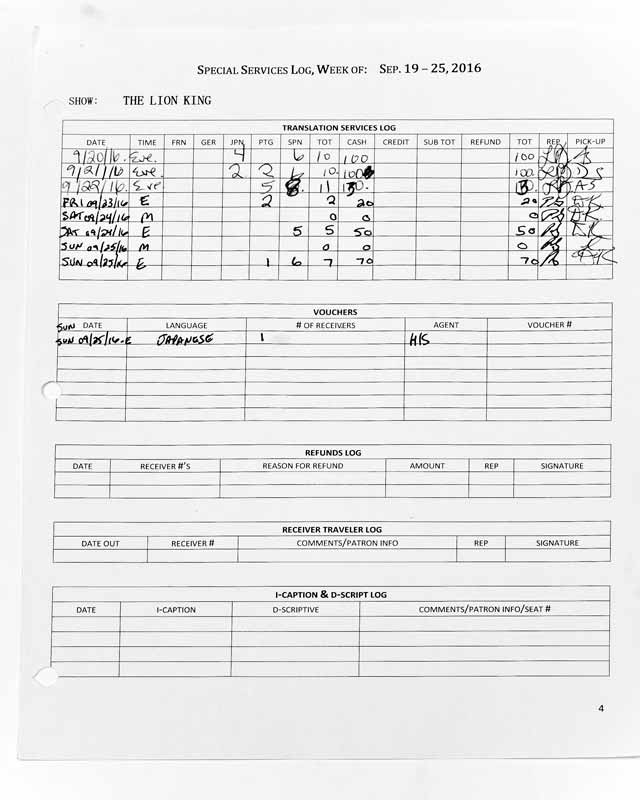 SPECIAL SERVICES LOG, WEEK OF: SEP. 19 – 25, 2016
SHOW: THE LION KING
TRANSLATION SERVICES LOG
DATE TIME FRN GER JPN PTG SPN TOT CASH CREDIT SUB TOT REFUND TOT REP PICK-UP
9/20/16. Eve. 4 6 10 100 100
9/21/16 Eve. 2 2 6 10. 100 100.
9/22/16. Eve 5 11
FRI 09/23/16 E 2 2 20 20
SAT 09/24/16 M 0 0 0
SAT 09/24/16 E 5 5 50 50
SUN 09/25/16 M 0 0 0
SUN 09/25/16 E 1 6 7 70 70
VOUCHERS
SUN DATE LANGUAGE # OF RECEIVERS AGENT VOUCHER #
SUN 09/25/16-E JAPANESE 1 HIS
REFUNDS LOG
DATE RECEIVER #'S REASON FOR REFUND AMOUNT REP SIGNATURE
RECEIVER TRAVELER LOG
DATE OUT RECEIVER # COMMENTS/PATRON INFO REP SIGNATURE
I-CAPTION & D-SCRIPT LOG
DATE I-CAPTION D-SCRIPTIVE COMMENTS/PATRON INFO/SEAT #
4